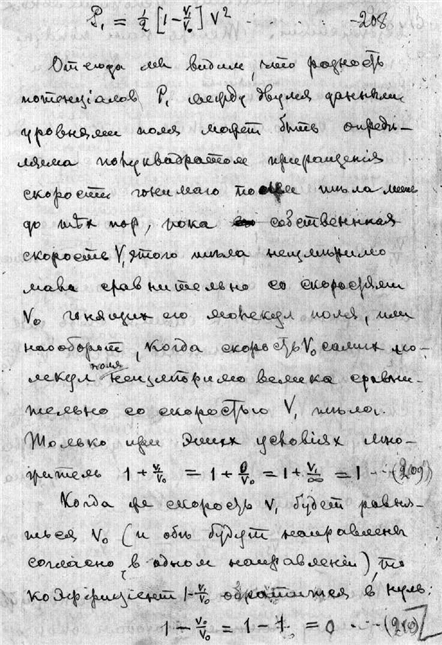 P₁ = 1/2 [1 - V₁/V₀] V² --- 208
Отсюда мы видимъ, что разность
потенціаловъ P₁ между двумя данными
уровнями поля можетъ быть опредѣ-
ляема полуквадратомъ приращенія
скорости гонимаго полемъ тѣла лишь
до тѣхъ поръ, пока собственная
скорость V₁ этого тѣла неизмѣримо
мала сравнительно со скоростями
V₀ гонящихъ его молекулъ поля, или
наоборотъ, когда скорость V₀ самихъ мо-
лекулъ поля неизмѣримо велика сравни-
тельно со скоростью V₁ тѣла.
Только при этихъ условіяхъ мно-
житель 1 + V₁/V₀ = 1 + 0/V₀ = 1 + V₁/∞ = 1 --- (209)
Когда же скорость V₁ будетъ равня-
ться V₀ (и обѣ будутъ направлены
согласно, въ одномъ направленіи), то
коэффиціентъ 1 - V₁/V₀ обратится въ нуль:
1 - V₀/V₀ = 1 - 1 = 0 --- (210)